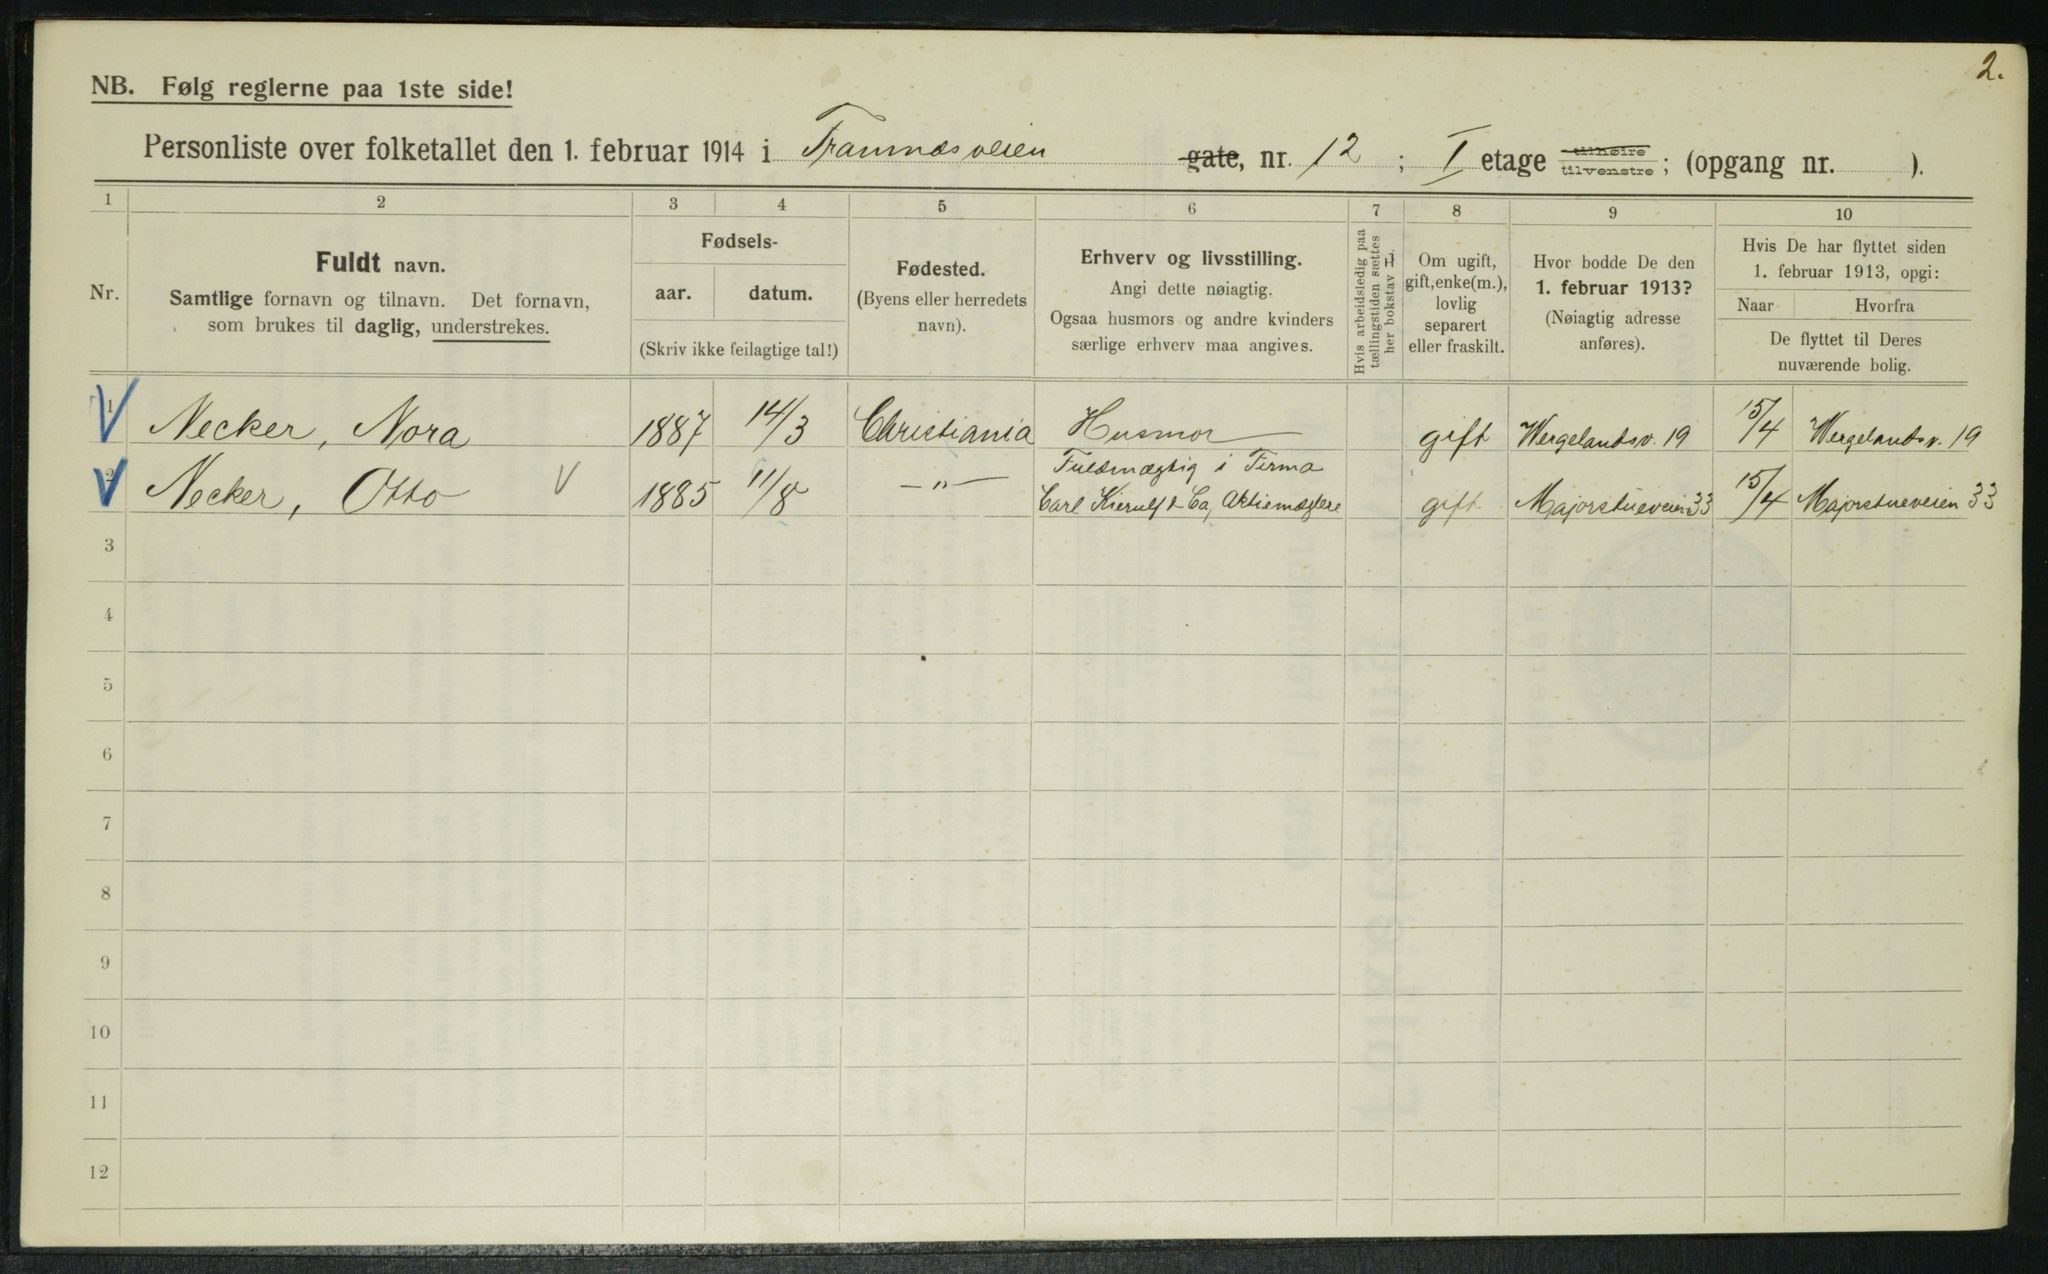 2.
NB. Følg reglerne paa 1ste side!
Personliste over folketallet den 1. februar 1914 i Framnæsveien gate, nr. 12 ; I etage tilhøire tilvenstre ; (opgang nr. ).
1 2 3 4 5 6 7 8 9 10
Nr.
Fuldt navn.
Samtlige fornavn og tilnavn. Det fornavn,
som brukes til daglig, understrekes.
Fødsels-
aar. datum.
(Skriv ikke feilagtige tal!)
Fødested.
(Byens eller herredets
navn).
Erhverv og livsstilling.
Angi dette nøiagtig.
Ogsaa husmors og andre kvinders
særlige erhverv maa angives.
Hvis arbeidsledig paa
tællingstiden sættes
her bokstav L.
Om ugift,
gift, enke(m.),
lovlig
separert
eller fraskilt.
Hvor bodde De den
1. februar 1913?
(Nøiagtig adresse
anføres).
Hvis De har flyttet siden
1. februar 1913, opgi:
Naar Hvorfra
De flyttet til Deres
nuværende bolig.
1 Necker, Nora 1887 14/3 Christiania Husmor gift Wergelandsv. 19 15/4 Wergelandsv. 19
2 Necker, Otto V 1885 11/8 -"- Fuldmægtig i Firma
Carl Kierulf & Co, Aktiemæglere gift Majorstueveien 33 15/4 Majorstueveien 33
3
4
5
6
7
8
9
10
11
12